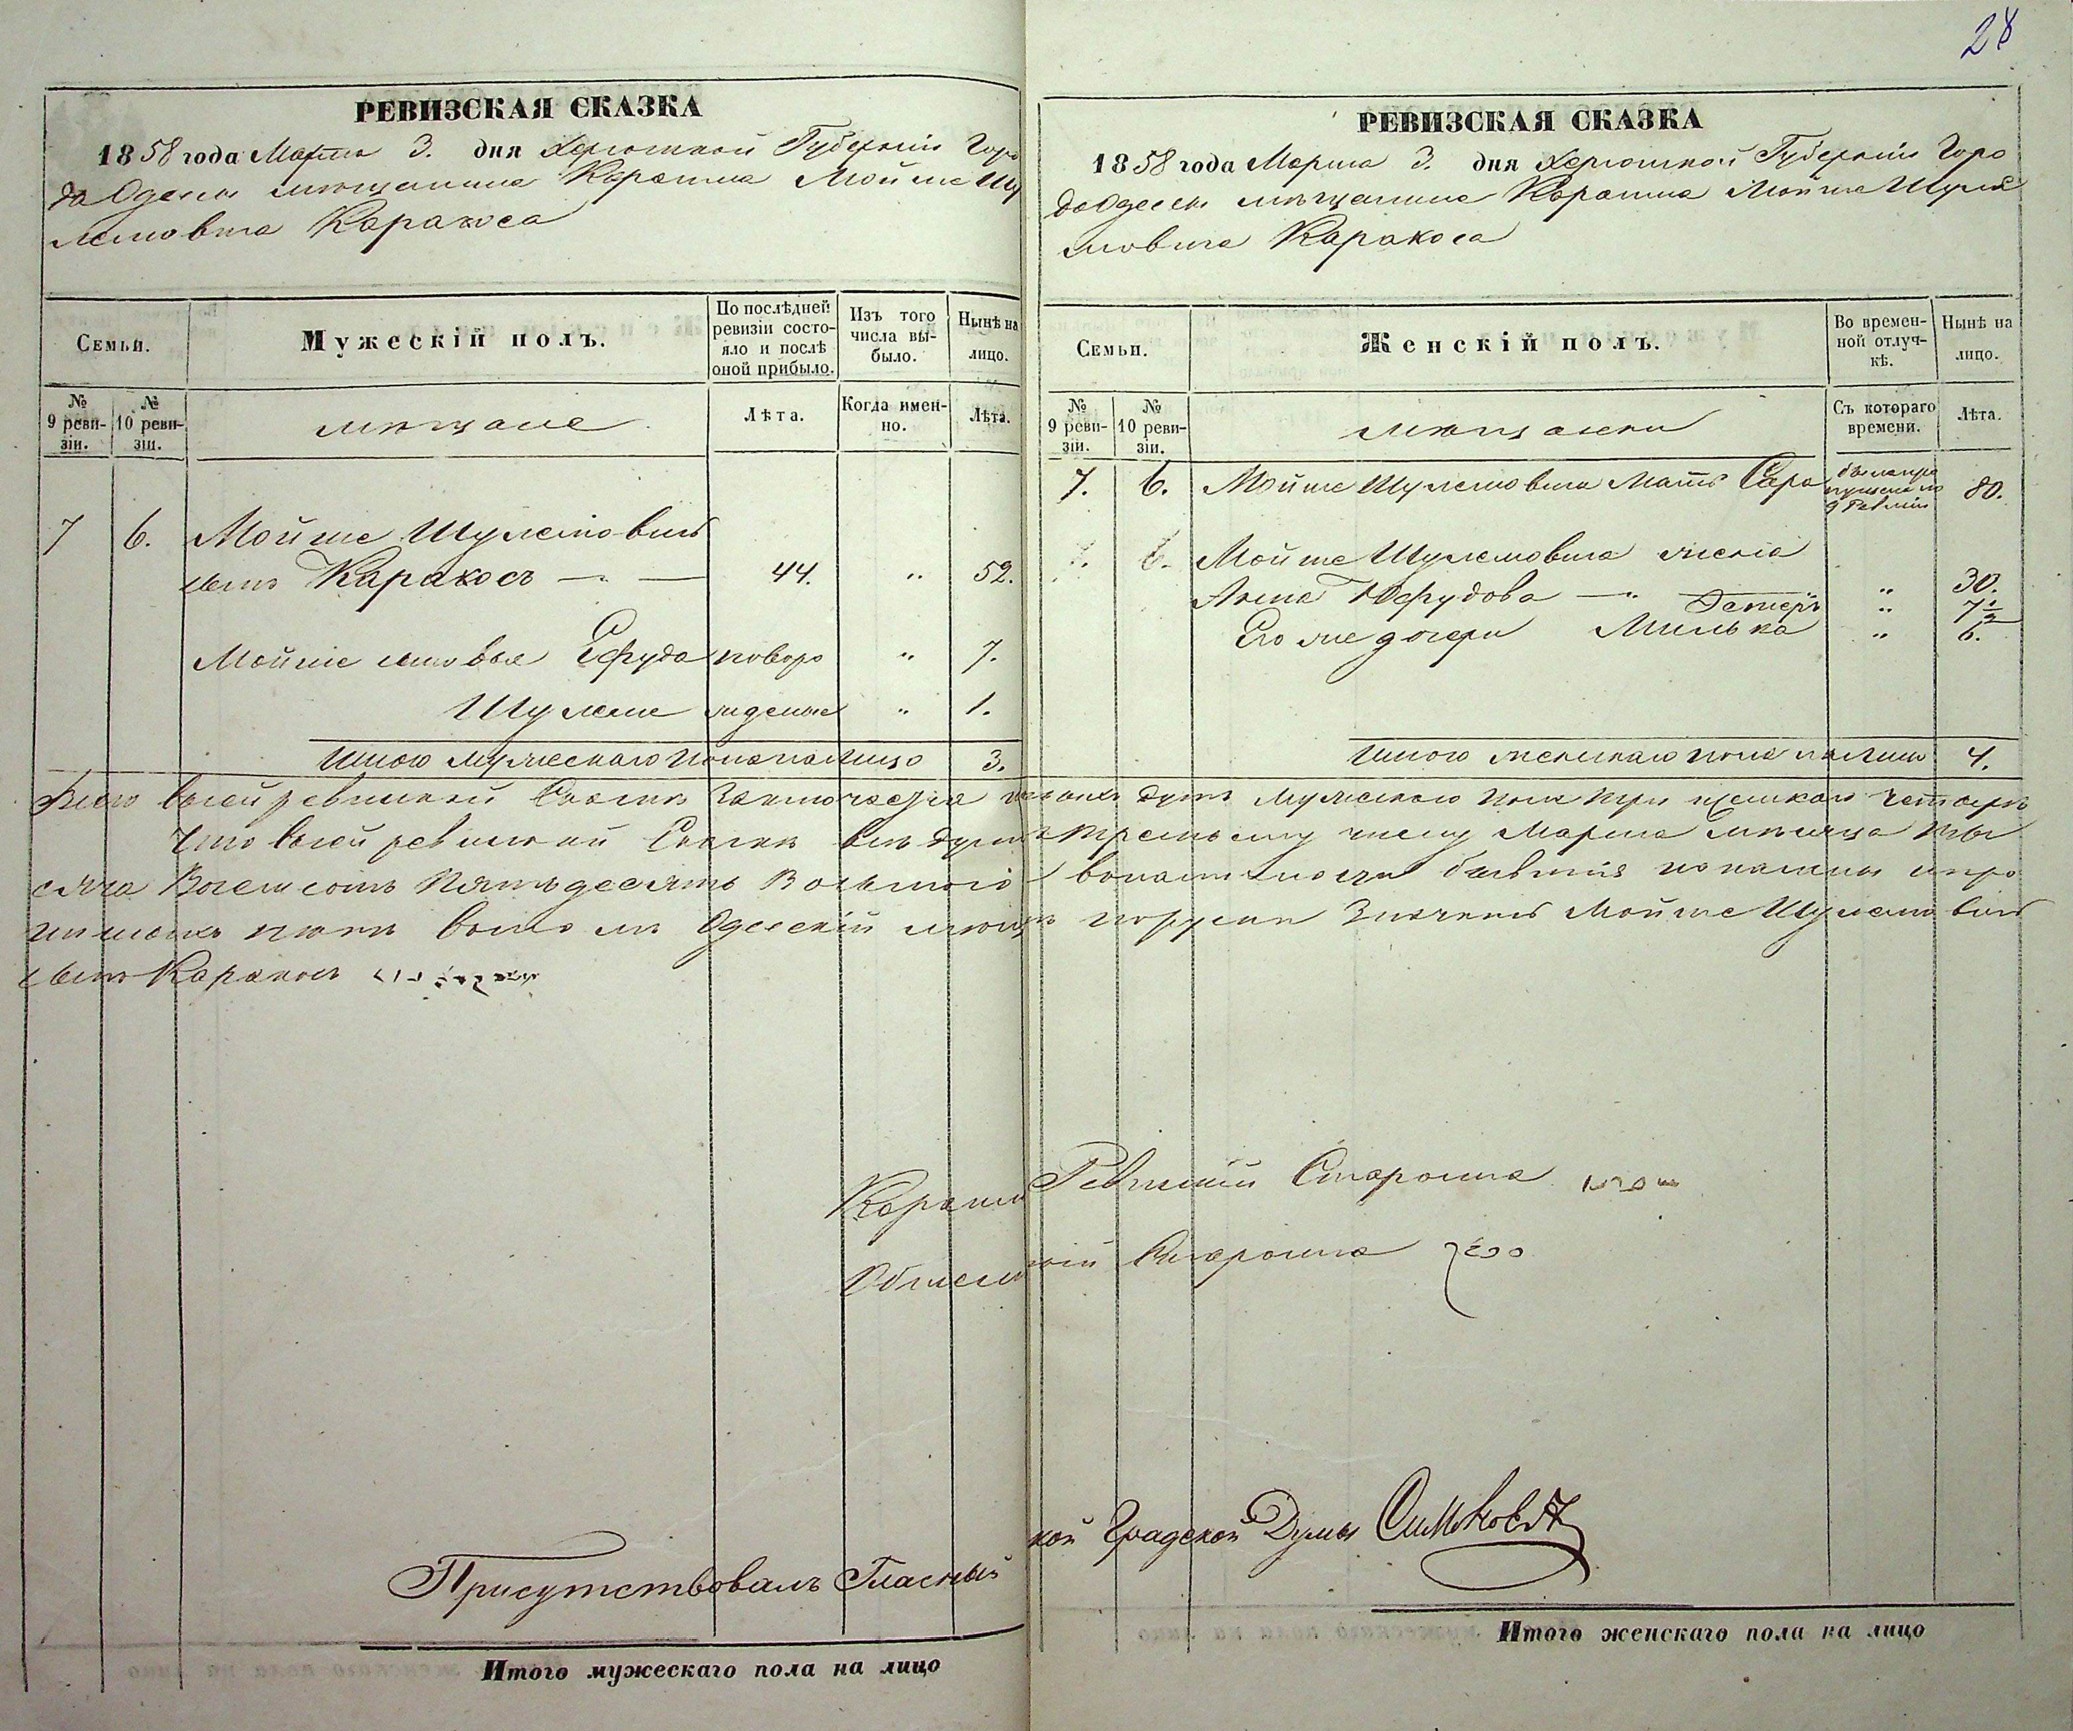 28
РЕВИЗСКАЯ СКАЗКА
1858 года Марта 3. дня Херсонской Губерніи Горо
да Одессы мѣщанина Караима Мойше Шу
лемовича Каракоса
Семьи.
Мужескій полъ.
По послѣдней ревизіи состо-
яло и послѣ
оной прибыло.
Изъ того
числа вы-
было.
Нынѣ на
лицо.
№
9 реви-
зіи.
№
10 реви-
зіи.
мѣщане
Лѣта.
Когда имен-
но.
Лѣта.
7 6. Мойше Шулемовичъ
сынъ Каракосъ — 44. " 52.
Мойше сыновья Ефуда новоро " 7.
Шулеме жденые " 1.
Итого мужескаго пола на лицо 3.
РЕВИЗСКАЯ СКАЗКА
1858 года Марта 3. дня Херсонской Губерніи Горо
да Одессы мѣщанина Караима Мойше Шуле
мовича Каракоса
Семьи.
Женскій полъ.
Во времен-
ной отлуч-
кѣ.
Нынѣ на
лицо.
№
9 реви-
зіи.
№
10 реви-
зіи.
мѣщанки
Съ котораго
времени.
Лѣта.
7. 6. Мойше Шулемовича Мать Сара была про
пущена по
9 Ревизіи 80.
7. 6. Мойше Шулемовича жена
Анна Юфудова — " 30.
" 7½
Его же дочери Милька " 6.
Итого женскаго пола на лицо 4.
Всего въ сей ревизской Сказке Заключается душъ мужеского пола три женскаго четыре
Что въ сей ревизской Сказке всѣ душъ къ третьему числу Марта мѣсяца ты
сяча Восемсотъ Пятьдесятъ Восьмого
Одесскій мѣщ Мойше Шулемовичъ
сынъ Каракосъ
Караим Ревизскій Староста
Староста
Присутствовалъ Гласный
кой Градской Думы Симоновъ
Итого мужескаго пола на лицо
Итого женскаго пола на лицо